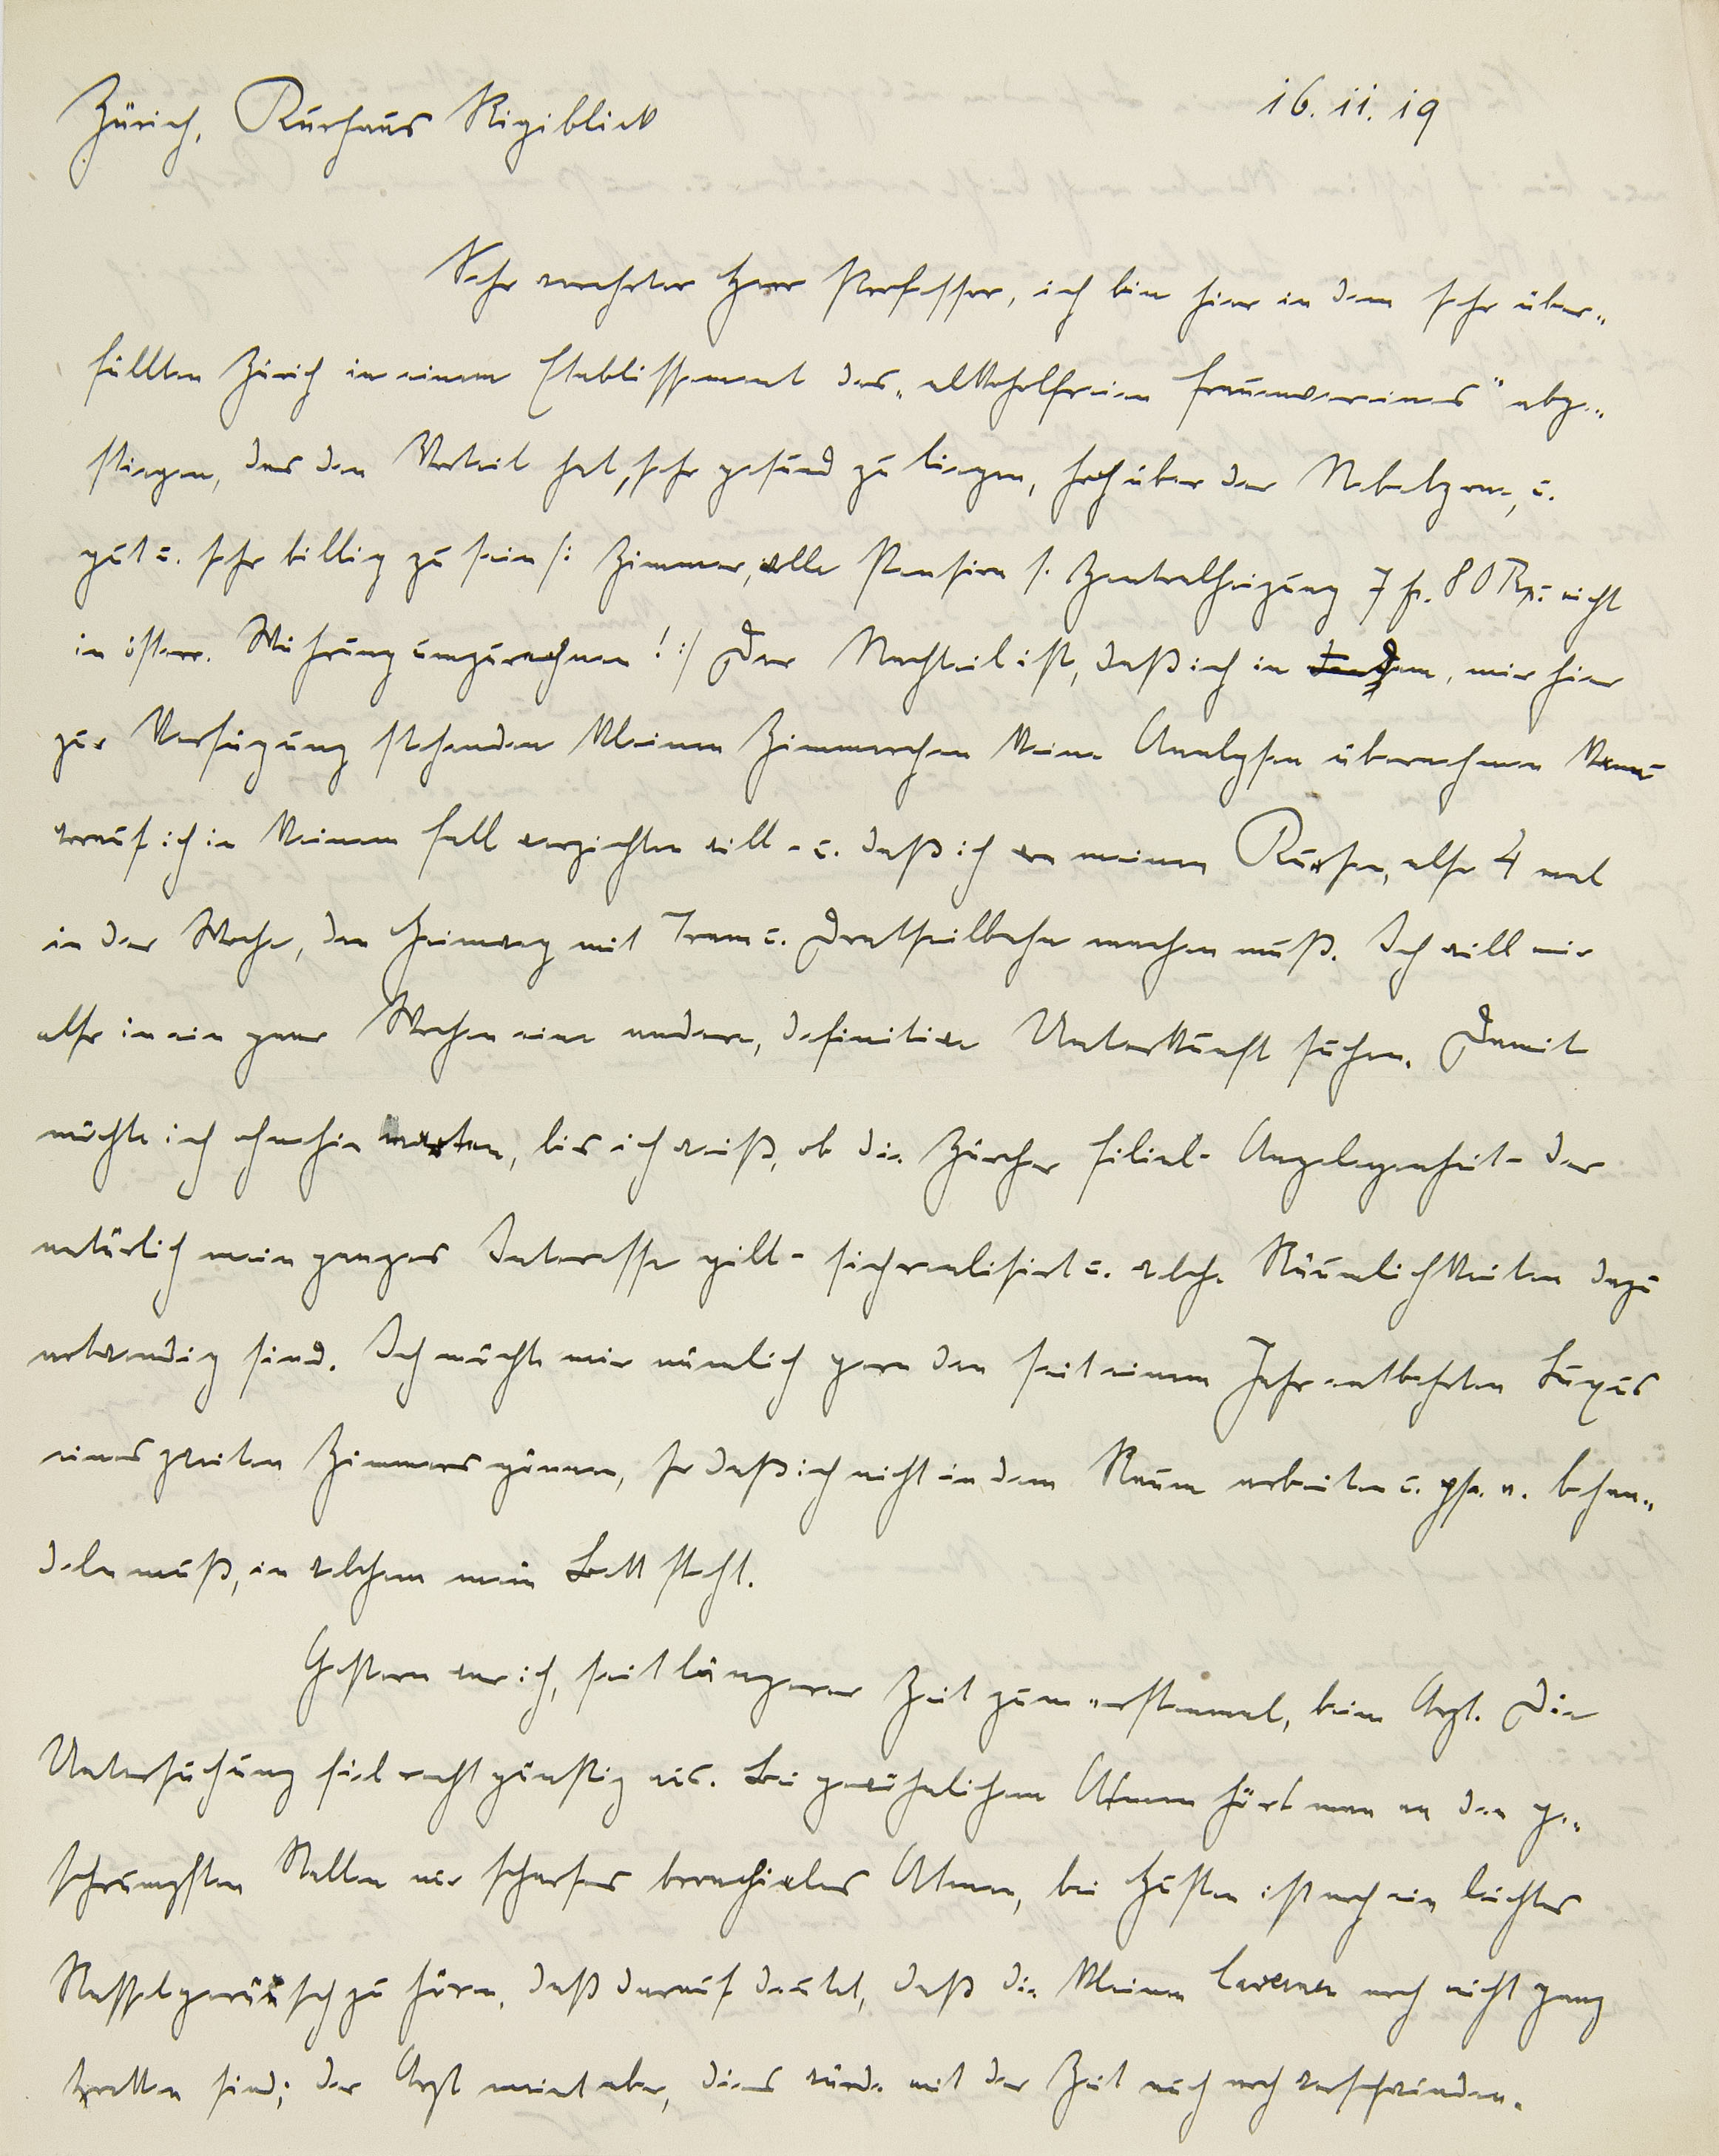 Zürich, Kurhaus Rigiblick
16.11.19
Sehr verehrter Herr Professor, ich bin hier in dem sehr über-
füllten Zürich in einem Etablissement des „alkoholfreien Frauenvereines" abge-
stiegen, das den Vorteil hat, sehr gesund zu liegen, hoch über der Nebelzone, u.
gut u. sehr billig zu sein /: Zimmer, volle Pension s. Zentralheizung 7 fr. 80 Rp: nicht
in österr. Währung umzurechnen ! :/ Der Nachteil ist, daß ich in dem, mir hier
zur Verfügung stehenden kleinen Zimmerchen keine Analysen übernehmen kann -
worauf ich in keinem Fall verzichten will - u. daß ich von meinen Kursen, also 4 mal
in der Woche, den Heimweg mit Tram u. Dratseilbahn machen muß. Ich will mir
also in ein paar Wochen eine andere, definitive Unterkunft suchen. Damit
möchte ich ohnehin warten, bis ich weiß, ob die Zürcher Filial- Angelegenheit - der
natürlich mein ganzes Interesse gilt - sich realisiert u. welche Räumlichkeiten dazu
notwendig sind. Ich möchte mir nämlich gern den seit einem Jahr entbehrten Luxus
eines zweiten Zimmers gönnen, so daß ich nicht in dem Raum arbeiten u. ψα. behan-
deln muß, in welchem mein Bett steht.
Gestern war ich, seit längerer Zeit zum erstenmal, beim Arzt. Die
Untersuchung fiel recht günstig aus. Bei gewöhnlichem Atmen hört man an den ge-
schrumpften Stellen nur scharfes bronchiales Atmen, bei Husten ist noch ein leichtes
Rasselgeräusch zu hören, daß darauf deutet, daß die kleinen Cavernen noch nicht ganz
tot sind; der Arzt meint aber, dies würde mit der Zeit auch noch verschwinden.